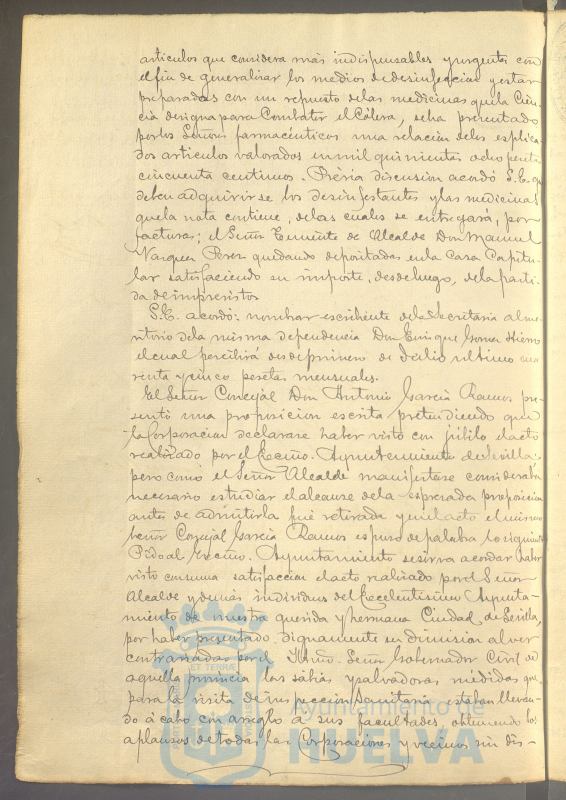 articulos que considera más indispensables y urgentes con
el fin de generalizar los medios de desinfeccion y estar
preparados con un repuesto delas medicinas que la Cien-
cia designa para Combatir el Cólera, se ha presentado
por los Señores farmacéuticos una relacion delos esplica-
dos articulos valorados en mil quinientas ocho peseta
cincuenta centimos. Prévia discusion acordó S.E. q.
deben adquirirse los desinfectantes y las medicinas
que la nota contiene, delas cuales se entregará, por
facturas; el Señor Teniente de Alcalde Don Manuel
Vazquez Perez quedando depositadas en la Casa Capitu-
lar satisfaciendo su importe, desde luego, dela parti-
da de imprevistos
S.E. acordó: nombrar escribiente dela Secretaria al me-
ritorio dela misma dependencia Don Enrique Gomez Hierro
el cual percibirá desde primero de Julio ultimo cua
renta y cinco pesetas mensuales.
El Señor Concejal Don Antonio Garcia Ramos pre
sentó una proposicion escrita pretendiendo que
la Corporacion declarase haber visto con júbilo el acto
realizado por el Excmo. Ayuntamiento de Sevilla;
pero como el Señor Alcalde manifestase consideraba
necesario estudiar el alcance dela espresada proposicion
antes de admitirla fué retirada y en el acto el mismo
Señor Concejal Garcia Ramos espuso de palabra lo siguiente
Pido al Excmo. Ayuntamiento se sirva acordar haber
visto con suma satisfaccion el acto realizado por el Señor
Alcalde y demás individuos del Excelentisimo Ayunta-
miento de nuestra querida y hermana Ciudad de Sevilla,
por haber presentado dignamente su dimision al ver
contrariadas por el Iltmo. Señor Gobernador Civil de
aquella provincia las sabias y salvadoras medidas que
para la visita de inspeccion Sanitaria estaban llevan-
do á cabo con arreglo á sus facultades, obteniendo los
aplausos de todas las Corporaciones y vecinos sin dis-
Ayuntamiento de
HUELVA